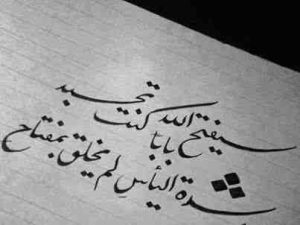 سيفتح الله بابا كنت تحسبه
شدة اليأس لم يخلق بمفتاح